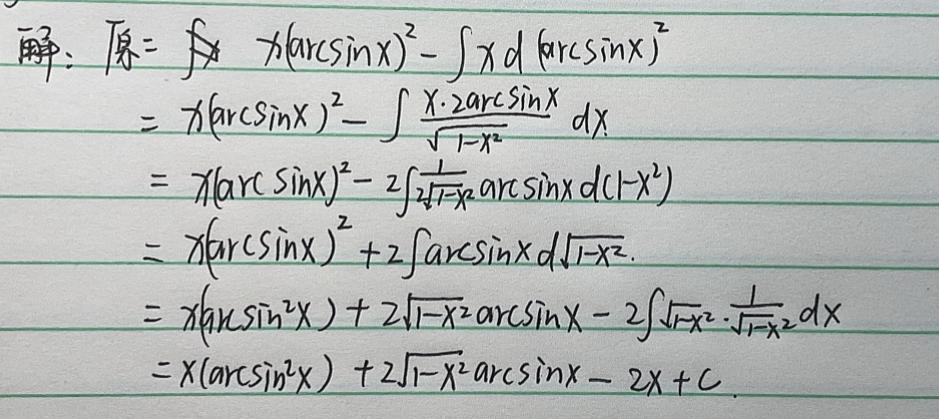 解：原= x(arcsinx)² - ∫xd(arcsinx)²
= x(arcsinx)² - ∫ x·2arcsinx/√(1-x²) dx
= x(arcsinx)² - 2∫ 1/(2√(1-x²)) arcsinx d(1-x²)
= x(arcsinx)² + 2∫arcsinx d√(1-x²).
= x(arcsin²x) + 2√(1-x²) arcsinx - 2∫√(1-x²)·1/√(1-x²) dx
= x(arcsin²x) + 2√(1-x²) arcsinx - 2x + C.